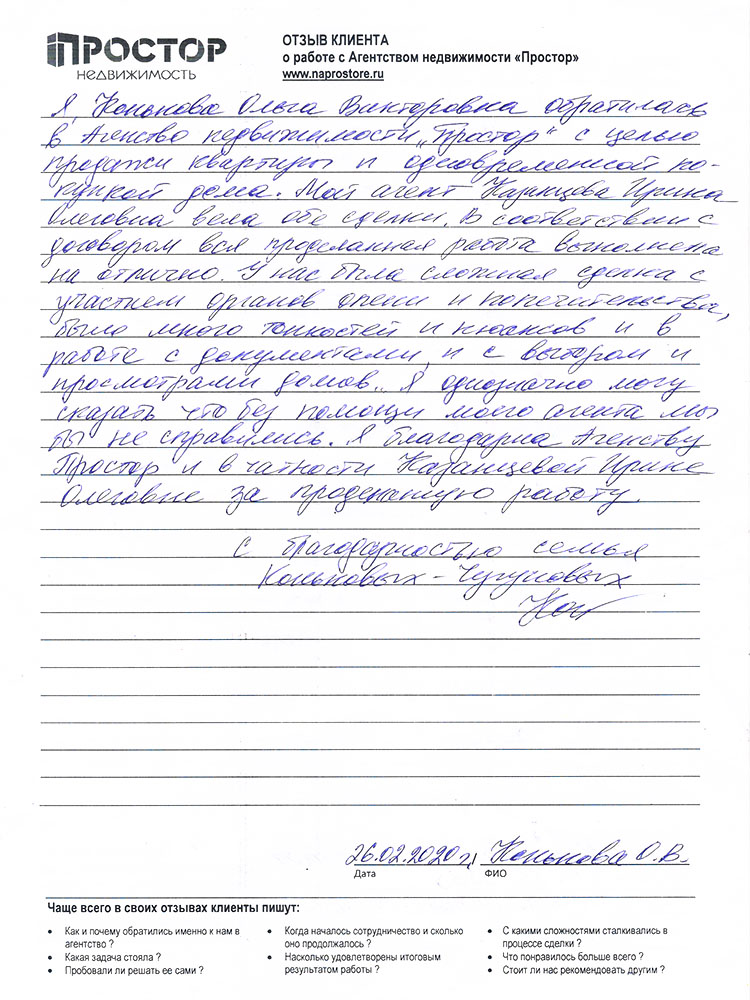 ПРОСТОР
НЕДВИЖИМОСТЬ
ОТЗЫВ КЛИЕНТА
о работе с Агентством недвижимости «Простор»
www.naprostore.ru
Я, Конькова Ольга Викторовна обратилась
в Агенство недвижимости „Простор" с целью
продажи квартиры и одновременной по-
купкой дома. Мой агент Казанцева Ирина
Олеговна вела обе сделки. В соответствии с
договором вся проделанная работа выполнена
на отлично. У нас была сложная сделка с
участием органов опеки и попечительства,
было много тонкостей и нюансов и в
работе с документами, и с выбором и
просмотрами домов. Я однозначно могу
сказать что без помощи моего агента мы
бы не справились. Я благодарна Агенству
Простор и в частности Казанцевой Ирине
Олеговне за проделанную работу.
С благодарностью семья
Коньковых - Чугуновых
26.02.2020 г. Конькова О.В.
Дата ФИО
Чаще всего в своих отзывах клиенты пишут:
• Как и почему обратились именно к нам в
агентство ?
• Какая задача стояла ?
• Пробовали ли решать ее сами ?
• Когда началось сотрудничество и сколько
оно продолжалось ?
• Насколько удовлетворены итоговым
результатом работы ?
• С какими сложностями сталкивались в
процессе сделки ?
• Что понравилось больше всего ?
• Стоит ли нас рекомендовать другим ?